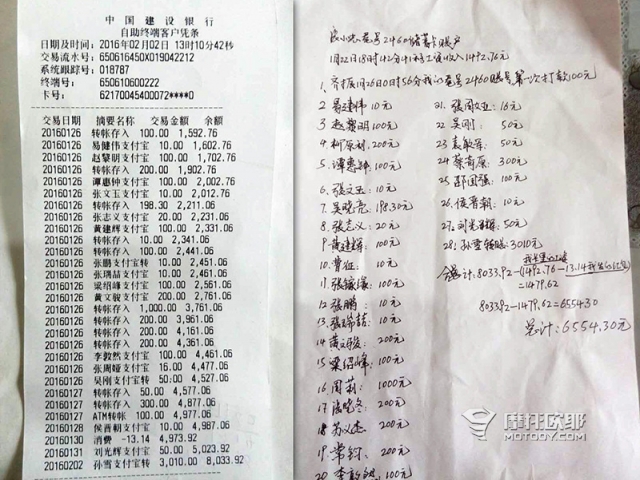 中国建设银行
自助终端客户凭条
日期及时间：2016年02月02日 13时10分42秒
交易流水号：650616450X019042212
系统跟踪号：018787
终端号：650610600222
卡号：62170045400072****0
交易日期 摘要名称 交易金额 余额
20160126 转帐存入 100.00 1,592.76
20160126 易健伟支付宝 10.00 1,602.76
20160126 赵黎明支付宝 100.00 1,702.76
20160126 转帐存入 200.00 1,902.76
20160126 谭惠钟支付宝 100.00 2,002.76
20160126 张文玉支付宝 10.00 2,012.76
20160126 转帐存入 198.30 2,211.06
20160126 张志义支付宝 20.00 2,231.06
20160126 黄建辉支付宝 100.00 2,331.06
20160126 转帐存入 10.00 2,341.06
20160126 转帐存入 100.00 2,441.06
20160126 张鹏支付宝转 10.00 2,451.06
20160126 张瑀喆支付宝 10.00 2,461.06
20160126 梁绍峰支付宝 100.00 2,561.06
20160126 黄文骏支付宝 200.00 2,761.06
20160126 转帐存入 1,000.00 3,761.06
20160126 转帐存入 200.00 3,961.06
20160126 转帐存入 200.00 4,161.06
20160126 转帐存入 200.00 4,361.06
20160126 李敦然支付宝 100.00 4,461.06
20160126 张周娅支付宝 16.00 4,477.06
20160126 吴刚支付宝转 50.00 4,527.06
20160127 转帐存入 50.00 4,577.06
20160127 转帐存入 300.00 4,877.06
20160127 ATM转帐 100.00 4,977.06
20160128 侯晋朝支付宝 10.00 4,987.06
20160130 消费 -13.14 4,973.92
20160131 刘光辉支付宝 50.00 5,023.92
20160202 孙雪支付宝转 3,010.00 8,033.92
尾号2460储蓄卡账户
1月22日18时42分 工资收入1492.76元
1月26日0时56分 尾号2460账号第一次打款100元
2 易建伟 10元
3 赵黎明 100元
4 200元
5 谭惠钟: 100元
6、张文玉: 10元
7、吴晓亮: 198.30元
8、张志义: 20元
9 黄建辉: 100元
10、曹征: 10元
11、 100元
12 张鹏: 10元
13、 喆: 10元
14 黄文骏 200元
15 梁绍峰: 100元
16 周莉: 1000元
17、 200元
18 200元
19、常钧: 200元
20、 100元
21、张周娅: 16元
22 吴刚: 50元
23 50元
24 300元
25 邵国强: 100元
26 侯晋朝: 10元
27 刘光辉: 50元
28: 孙雪 3010元
合计: 8033.92-(1492.76-13.14
=1479.62
8033.92-1479.62=6554.30
总计: 6554.30元
摩托欧耶
MOTOOY.COM